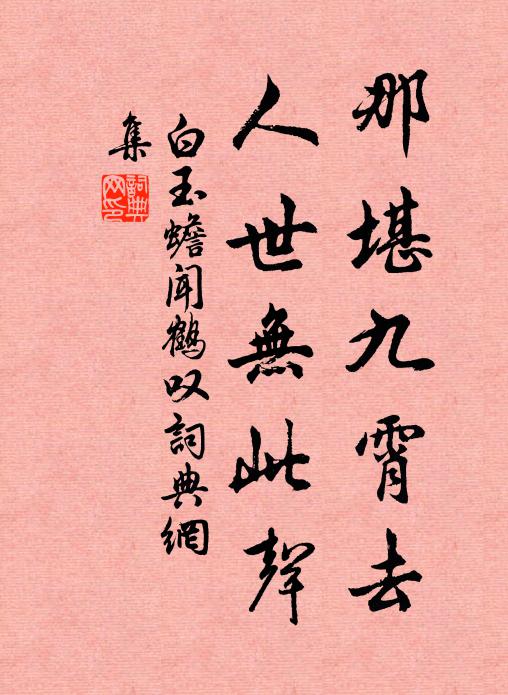 那堪九霄去
人世無此聲
白玉蟾聞鶴叹詞典網
集
詞典網印